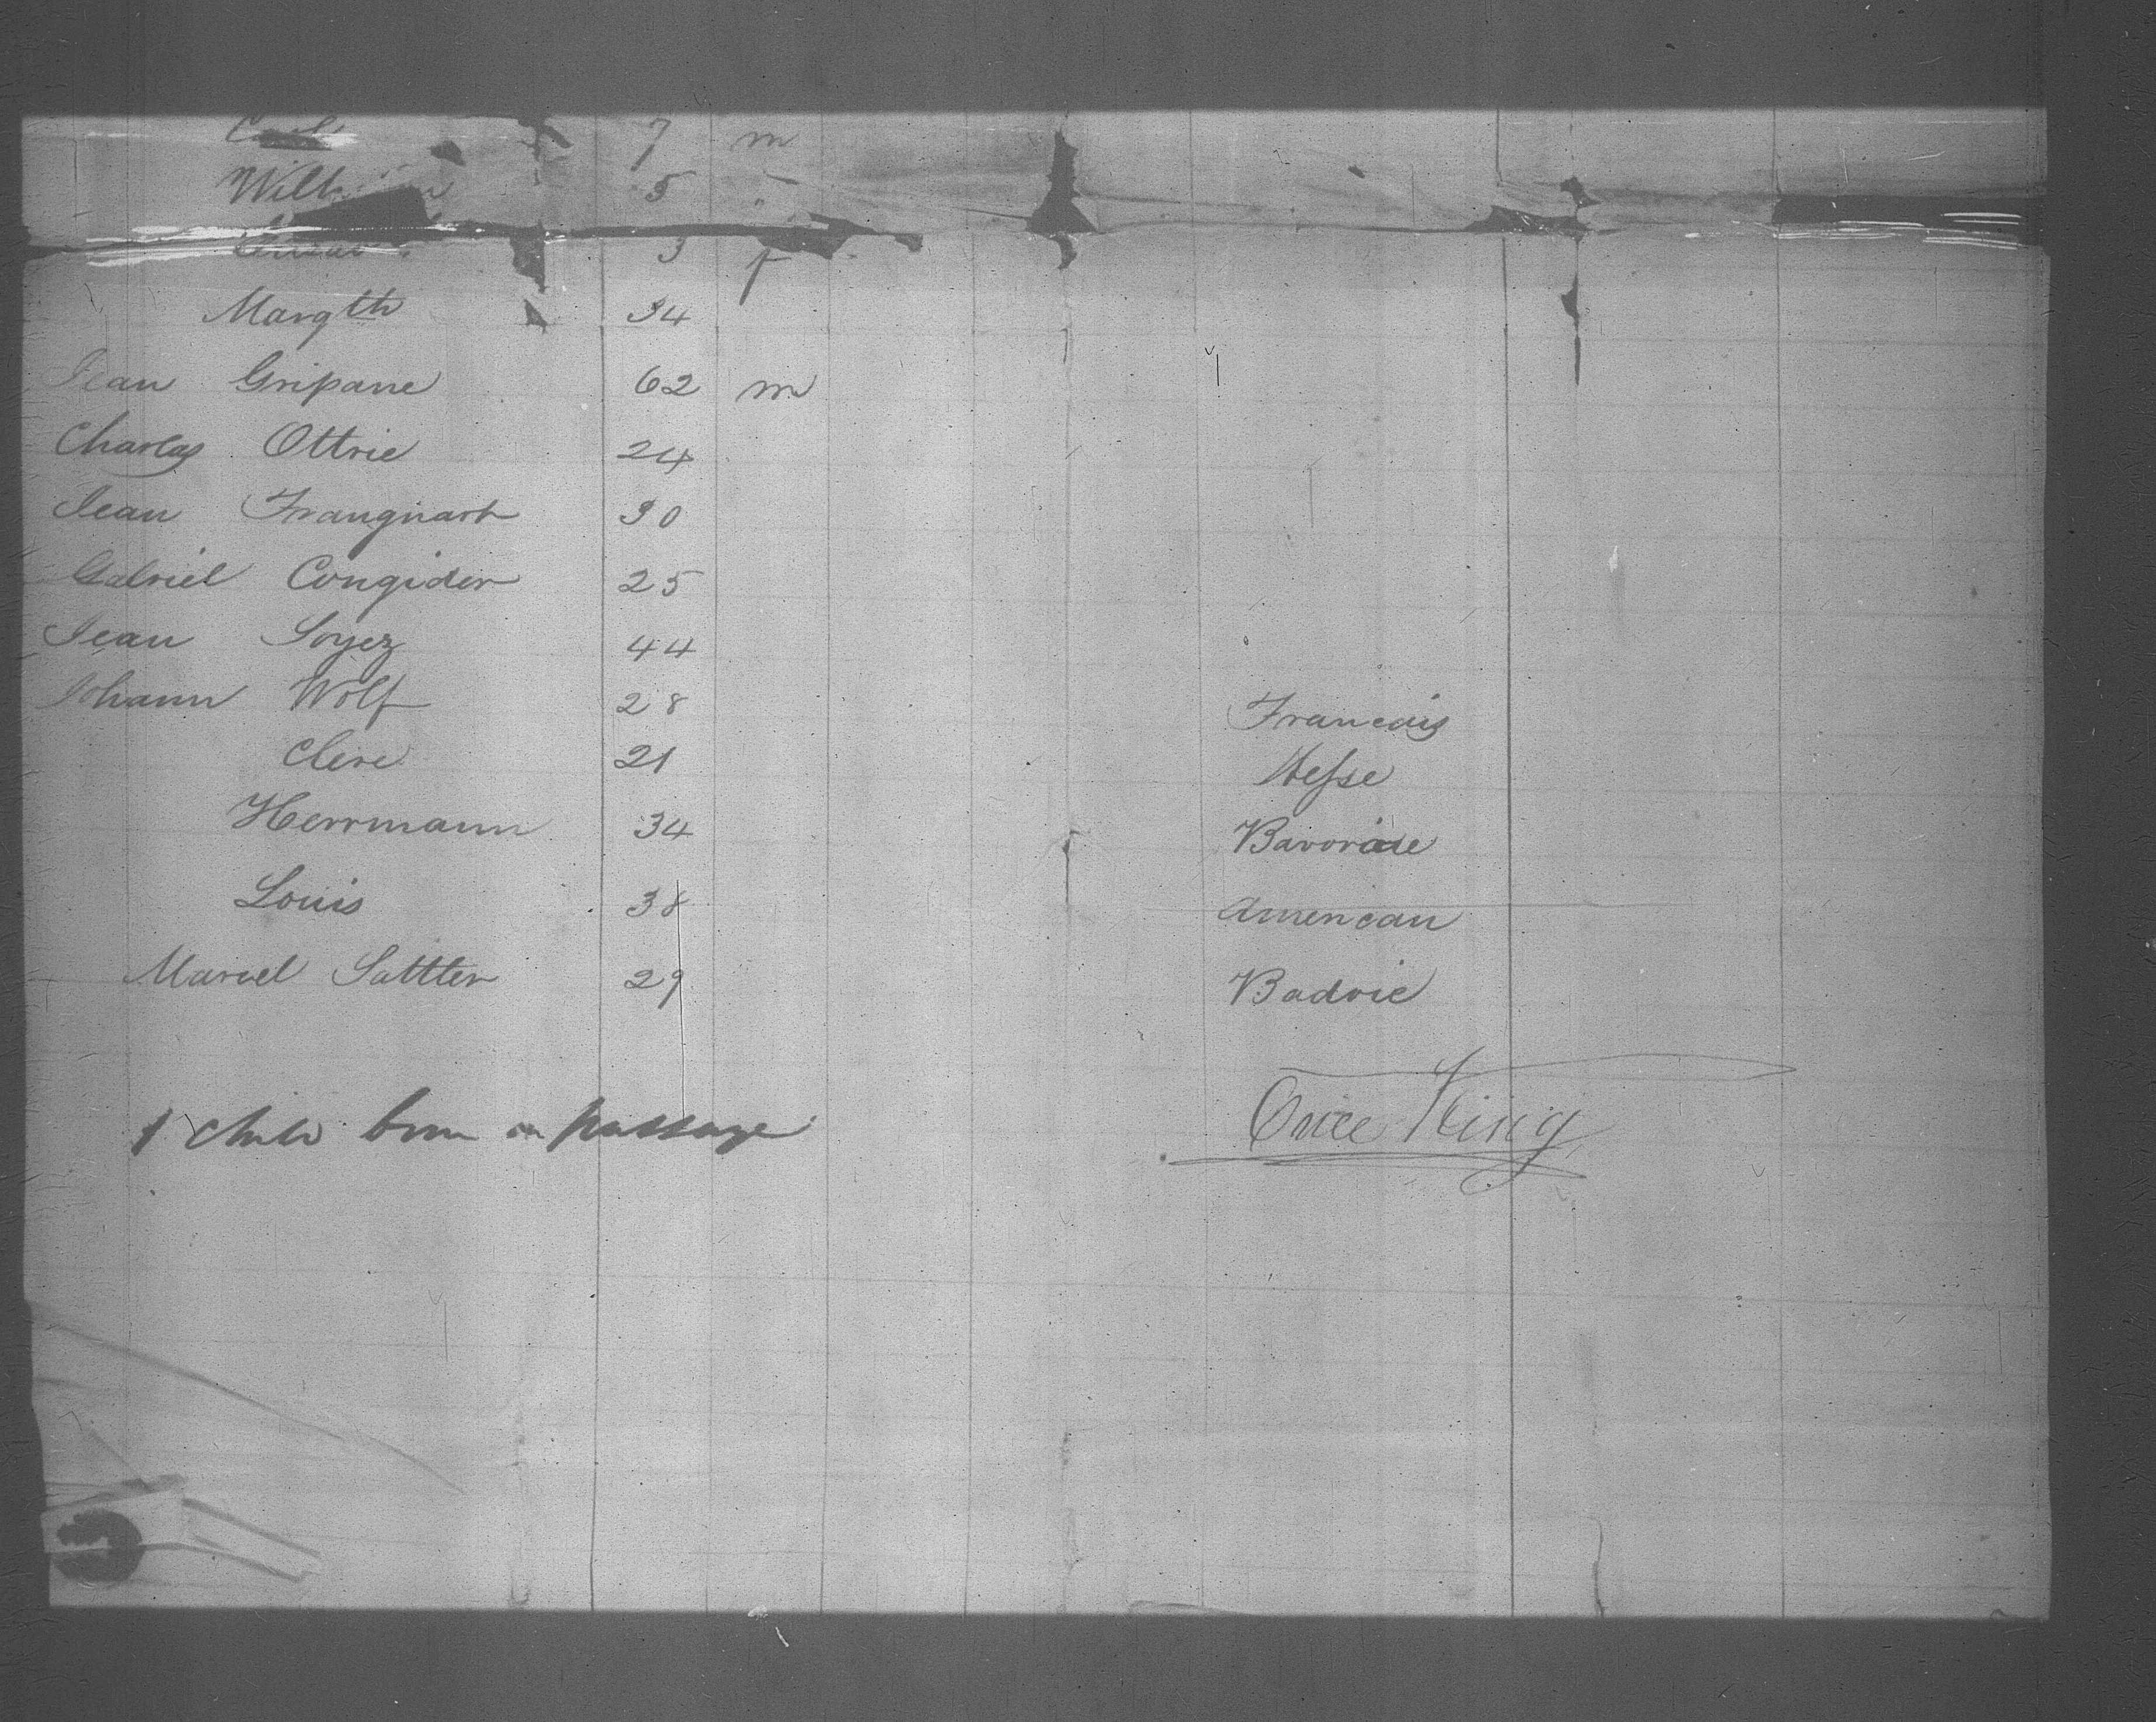 Carl 7 m
5 "
3 f
Margth 34
Jean Gripane 62 m
Charles Ottrie 24
Jean Franquart 30
Gabriel Congider 25
Jean Soyez 44
Johann Wolf 28 Francais
Clere 21 Hesse
Herrmann 34 Bavoroise
Louis 38 American
Marcel Sattler 29 Badoie
1 child born on passage
King